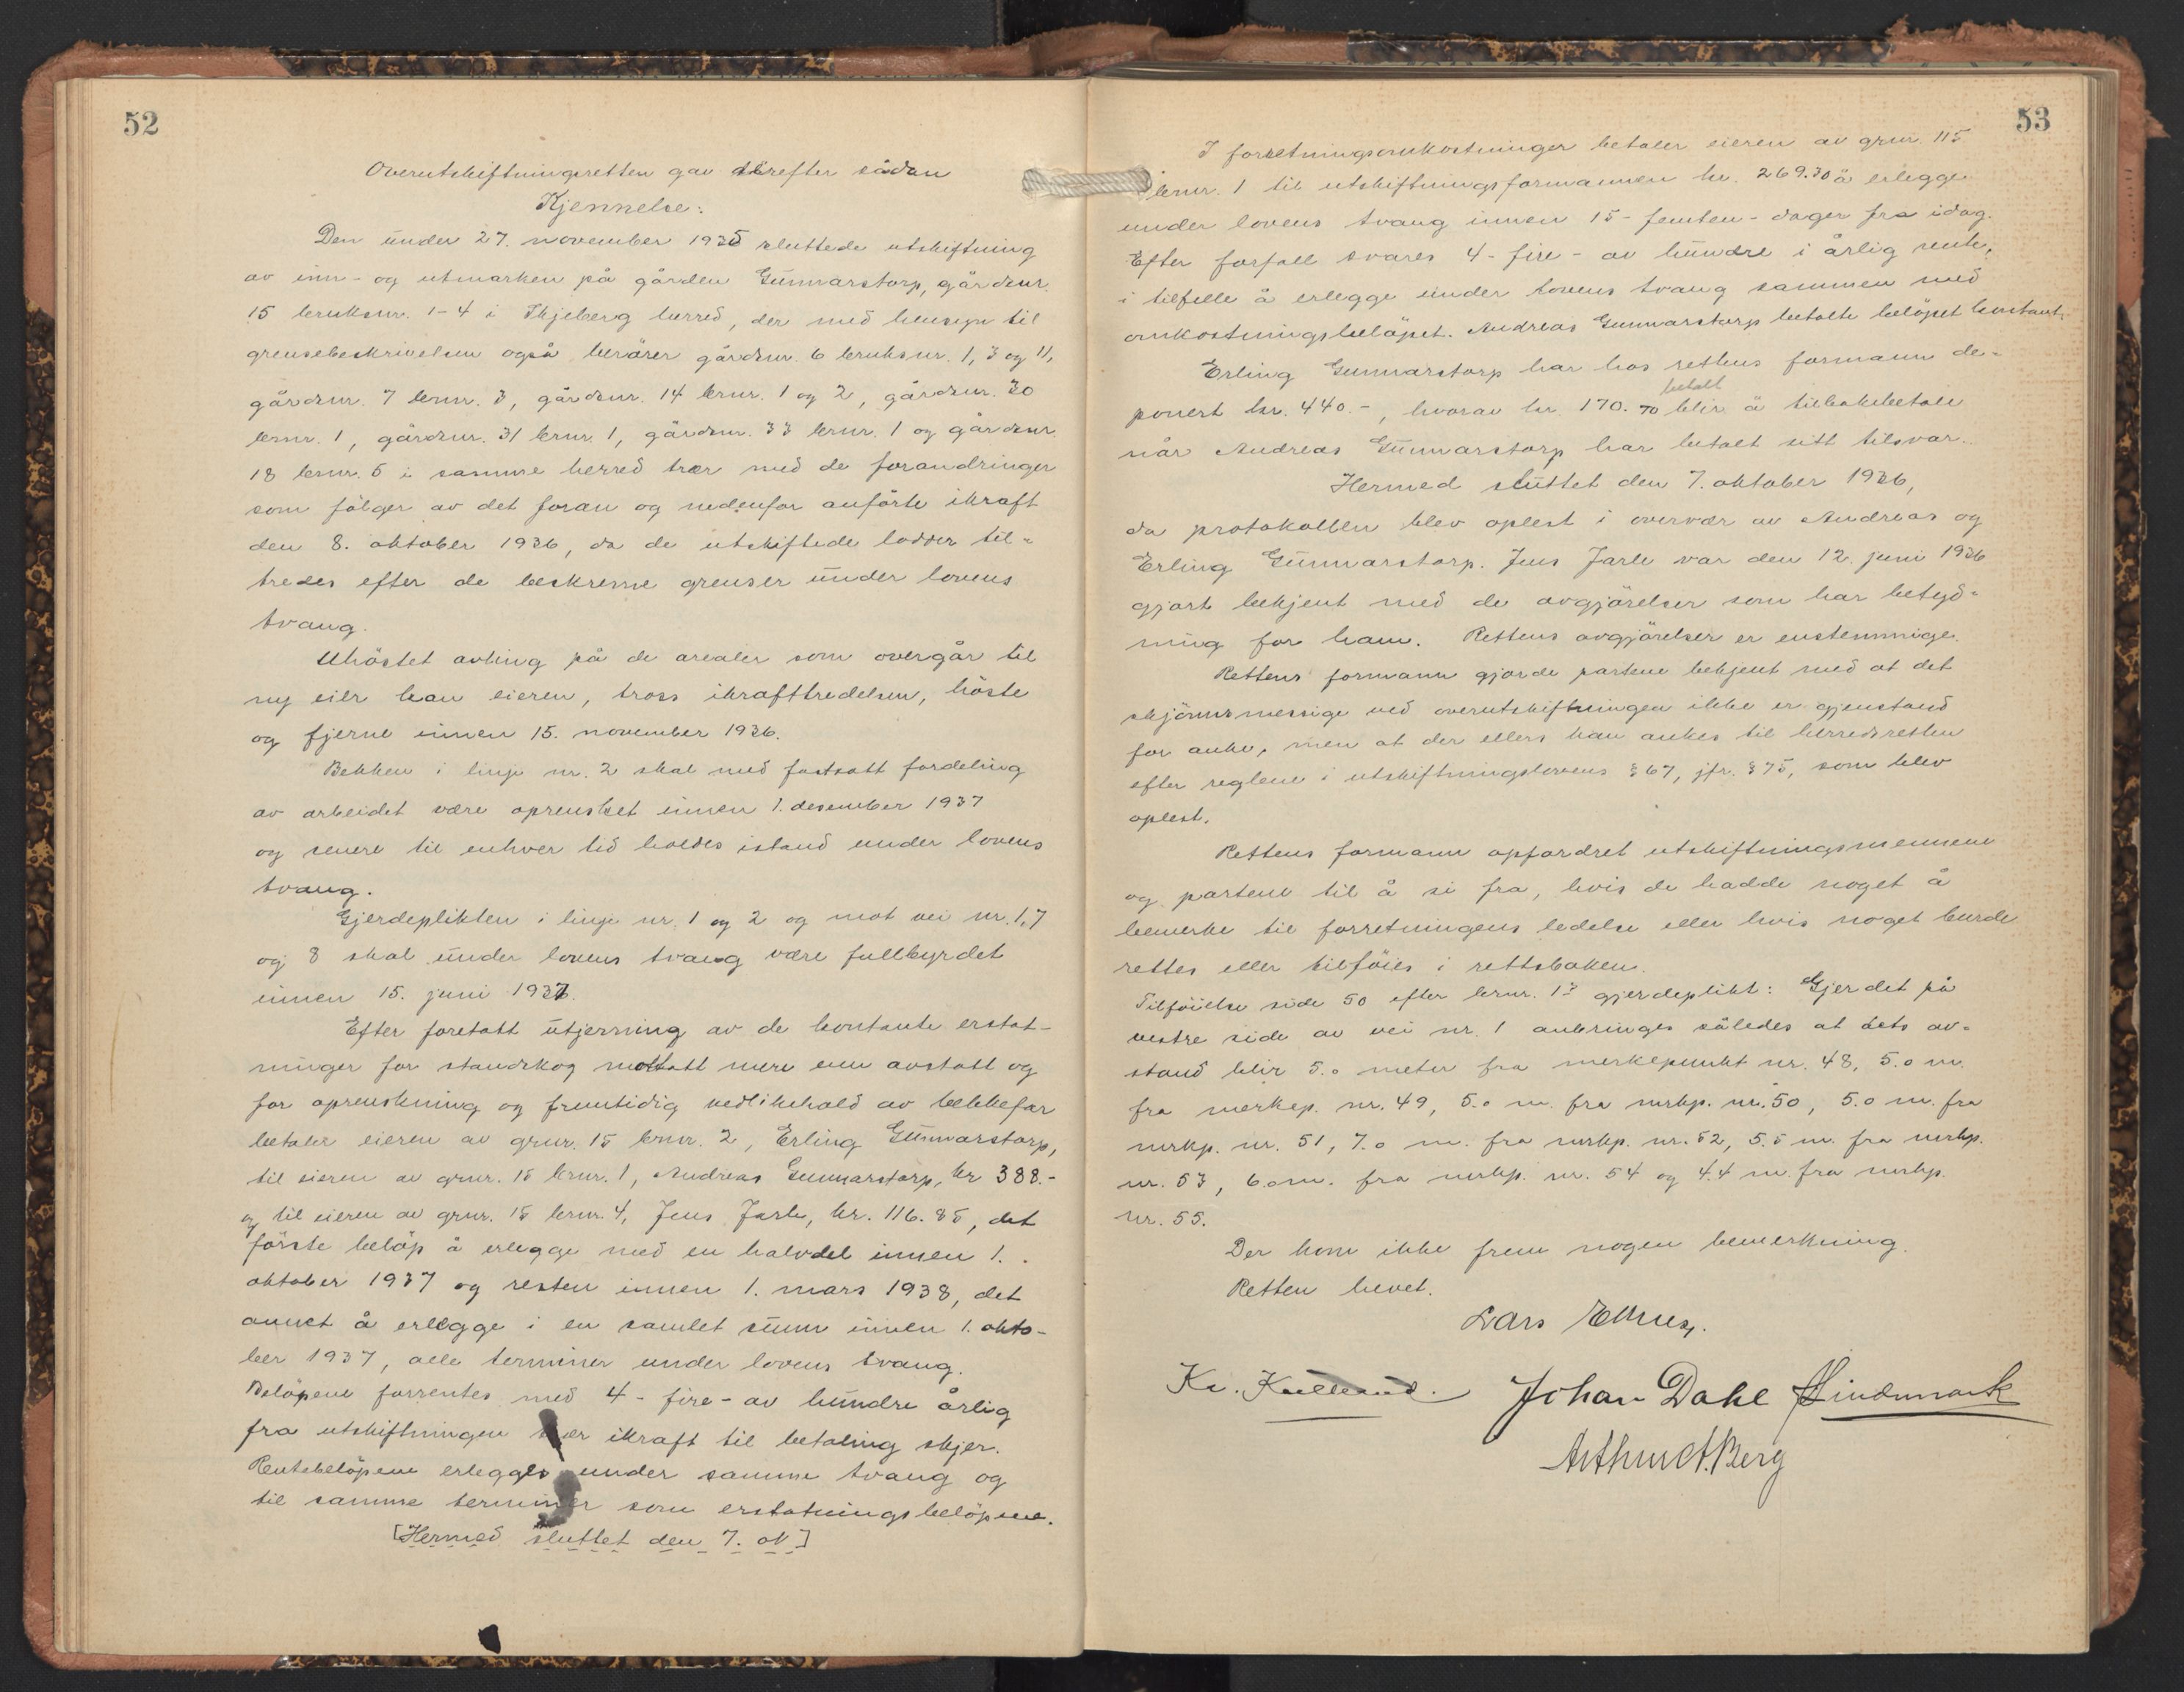 52
Overutskiftningsretten gav derefter sådan
Kjennelse:
Den under 27. november 1935 sluttede utskiftning
av inn- og utmarken på gården Gunnarstorp, gårdsnr.
15 bruksnr. 1-4 i Skjeberg herred, der med hensyn til
grensebeskrivelsen også berører gårdsnr. 6 bruksnr. 1, 3 og 11,
gårdsnr. 7 brnr. 3, gårdsnr. 14 brnr. 1 og 2, gårdsnr. 30
brnr. 1, gårdsnr. 31 brnr. 1, gårdsnr. 33 brnr. 1 og gårdsnr.
18 brnr. 5 i samme herred trær med de forandringer
som følger av det foran og nedenfor anførte ikraft
den 8. oktober 1936, da de utskiftede lodder til-
tredes efter de beskrevne grenser under lovens
tvang.
Uhøstet avling på de arealer som overgår til
ny eier kan eieren, tross ikrafttredelsen, høste
og fjerne innen 15. november 1936.
Bekken i linje nr. 2 skal med fastsatt fordeling
av arbeidet være oprensket innen 1. desember 1937
og senere til enhver tid holdes istand under lovens
tvang.
Gjerdeplikten i linje nr. 1 og 2 og mot vei nr. 1, 7
og 8 skal under lovens tvang være fullbyrdet
innen 15. juni 1937.
Efter foretatt utjevning av de kontante erstat-
ninger for standskog mottatt mere enn avstått og
for oprenskning og fremtidig vedlikehold av bekkefar
betaler eieren av grnr. 15 brnr. 2, Erling Gunnarstorp,
til eieren av grnr. 15 brnr. 1, Andreas Gunnarstorp, kr 388.-
og til eieren av grnr. 15 brnr. 4, Jens Jarle, kr. 116.85, det
første beløp å erlegge med en halvdel innen 1.
oktober 1937 og resten innen 1. mars 1938, det
annet å erlegge i en samlet sum innen 1. okto-
ber 1937, alle terminer under lovens tvang.
Beløpene forrentes med 4 - fire - av hundre årlig
fra utskiftningen trær ikraft til betaling skjer.
Rentebeløpene erlegges under samme tvang og
til samme terminer som erstatningsbeløpene.
[Hermed sluttet den 7. ok]
53
I forretningsomkostninger betaler eieren av grnr. 115
brnr. 1 til utskiftningsformannen kr. 269.30 å erlegge
under lovens tvang innen 15 - femten - dager fra idag.
Efter forfall svares 4 - fire - av hundre i årlig rente,
i tilfelle å erlegge under lovens tvang sammen med
omkostningsbeløpet. Andreas Gunnarstorp betalte beløpet kontant.
Erling Gunnarstorp har hos rettens formann de-
betalt
ponert kr. 440.-, hvorav kr 170.70 blir å tilbakebetale
når Andreas Gunnarstorp har betalt sitt tilsvar.
Hermed sluttet den 7. oktober 1936,
da protokollen blev oplest i overvær av Andreas og
Erling Gunnarstorp. Jens Jarle var den 12. juni 1936
gjort bekjent med de avgjørelser som har betyd-
ning for ham. Rettens avgjørelser er enstemmige.
Rettens formann gjorde partene bekjent med at det
skjønnsmessige ved overutskiftningen ikke er gjenstand
for anke, men at der ellers kan ankes til herredsretten
efter reglene i utskiftningslovens § 67, jfr. § 75, som blev
oplest.
Rettens formann opfordret utskiftningsmennene
og partene til å si fra, hvis de hadde noget å
bemerke til forretningens ledelse eller hvis noget burde
rettes eller tilføies i rettsboken.
Tilføielse side 50 efter brnr. 1s gjerdeplikt: Gjerdet på
vestre side av vei nr. 1 anbringes således at dets av-
stand blir 5.0 meter fra merkepunkt nr. 48, 5.0 m.
fra merkep. nr. 49, 5.0 m. fra mrkp. nr. 50, 5.0 m. fra
mrkp. nr. 51, 7.0 m. fra mrkp. nr. 52, 5.5 m. fra mrkp.
nr. 53, 6.0 m. fra mrkp. nr. 54 og 4.4 m. fra mrkp.
nr. 55.
Der kom ikke frem nogen bemerkning.
Retten hevet.
Lars
Johan Dahl Lindemark
Arthur A. Berg